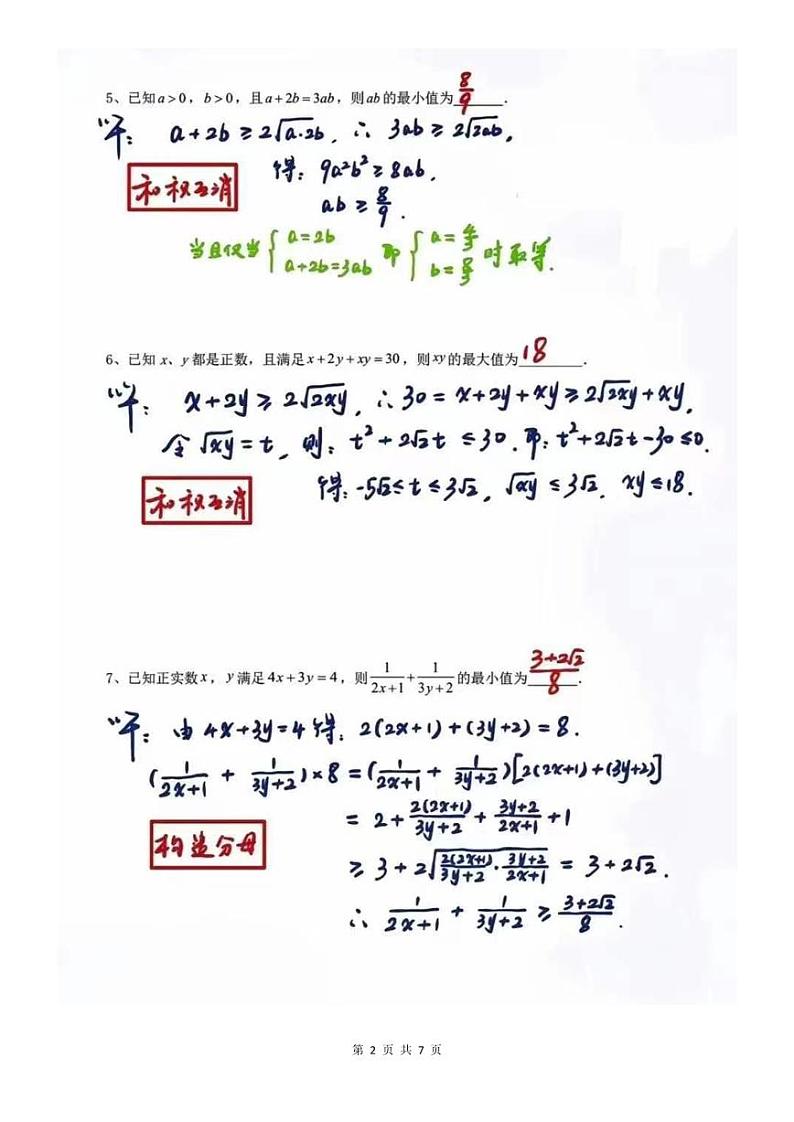 5、已知 a > 0，b > 0，且 a + 2b = 3ab，则 ab 的最小值为 8/9 .
a+2b ≥ 2√(a·2b), ∴ 3ab ≥ 2√(2ab),
得: 9a²b² ≥ 8ab,
和积互消
ab ≥ 8/9 .
当且仅当 { a=2b a+2b=3ab 即 { a=4/3 b=2/3 时取等.
6、已知 x、y 都是正数，且满足 x + 2y + xy = 30，则 xy 的最大值为 18 .
x+2y ≥ 2√(2xy), ∴ 30 = x+2y+xy ≥ 2√(2xy)+xy,
令 √(xy) = t, 则: t²+2√2t ≤ 30. 即: t²+2√2t-30 ≤ 0.
得: -5√2 ≤ t ≤ 3√2, √(xy) ≤ 3√2, xy ≤ 18.
和积互消
7、已知正实数 x，y 满足 4x + 3y = 4，则 1/(2x+1) + 1/(3y+2) 的最小值为 (3+2√2)/8 .
由 4x+3y=4 得: 2(2x+1)+(3y+2)=8.
(1/(2x+1) + 1/(3y+2))×8 = (1/(2x+1) + 1/(3y+2))[2(2x+1)+(3y+2)]
= 2 + 2(2x+1)/(3y+2) + (3y+2)/(2x+1) + 1
构造分母
≥ 3+2√(2(2x+1)/(3y+2) · (3y+2)/(2x+1)) = 3+2√2.
∴ 1/(2x+1) + 1/(3y+2) ≥ (3+2√2)/8 .
第 2 页 共 7 页